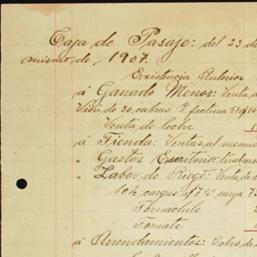 Caja de Pasajo: del 23 de
mismo, de 1907.
Existencia Anterior
á Ganado Menor: Venta, d
de 30, cabras f factura
Venta de leche
á Tienda: Ventas, al menu
" Gastos Escritorio: timbres
" Labor de Riego: Venta, de
104 cargas
Tornachile
Tomate
á Arrendamientos: Cobro de